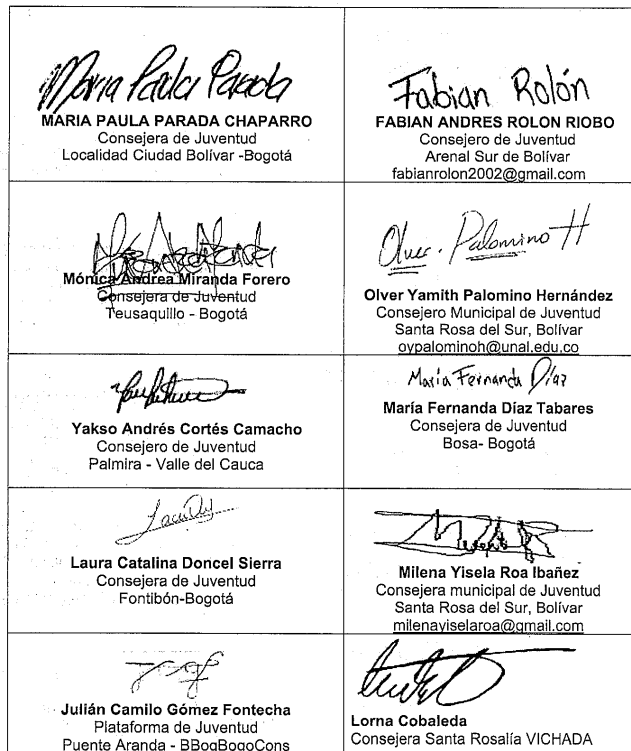 Maria Paula Parada
MARIA PAULA PARADA CHAPARRO
Consejera de Juventud
Localidad Ciudad Bolívar -Bogotá
Fabian Rolón
FABIAN ANDRES ROLON RIOBO
Consejero de Juventud
Arenal Sur de Bolívar
fabianrolon2002@gmail.com
Mónica Andrea Miranda Forero
Consejera de Juventud
Teusaquillo - Bogotá
Olver. Palomino H
Olver Yamith Palomino Hernández
Consejero Municipal de Juventud
Santa Rosa del Sur, Bolívar
oypalominoh@unal.edu.co
Yakso Andrés Cortés Camacho
Consejero de Juventud
Palmira - Valle del Cauca
María Fernanda Díaz
María Fernanda Díaz Tabares
Consejera de Juventud
Bosa- Bogotá
Laura Catalina Doncel Sierra
Consejera de Juventud
Fontibón-Bogotá
Milena Yisela Roa Ibañez
Consejera municipal de Juventud
Santa Rosa del Sur, Bolívar
milenayiselaroa@gmail.com
Julián Camilo Gómez Fontecha
Plataforma de Juventud
Puente Aranda - BBogBogoCons
Lorna Cobaleda
Consejera Santa Rosalía VICHADA